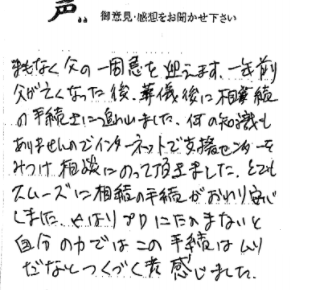 声。 御意見・感想をお聞かせ下さい
まもなく父の一周忌を迎えます。一年前
父が亡くなった後、葬儀後に相続
の手続きに追われました。何の知識も
ありませんのでインターネットで支援センターを
みつけ相談にのって頂きました。とても
スムーズに相続の手続がおわり安心
しました。やはりプロにたのまないと
自分の力ではこの手続はムリ
だなとつくづく感じました。